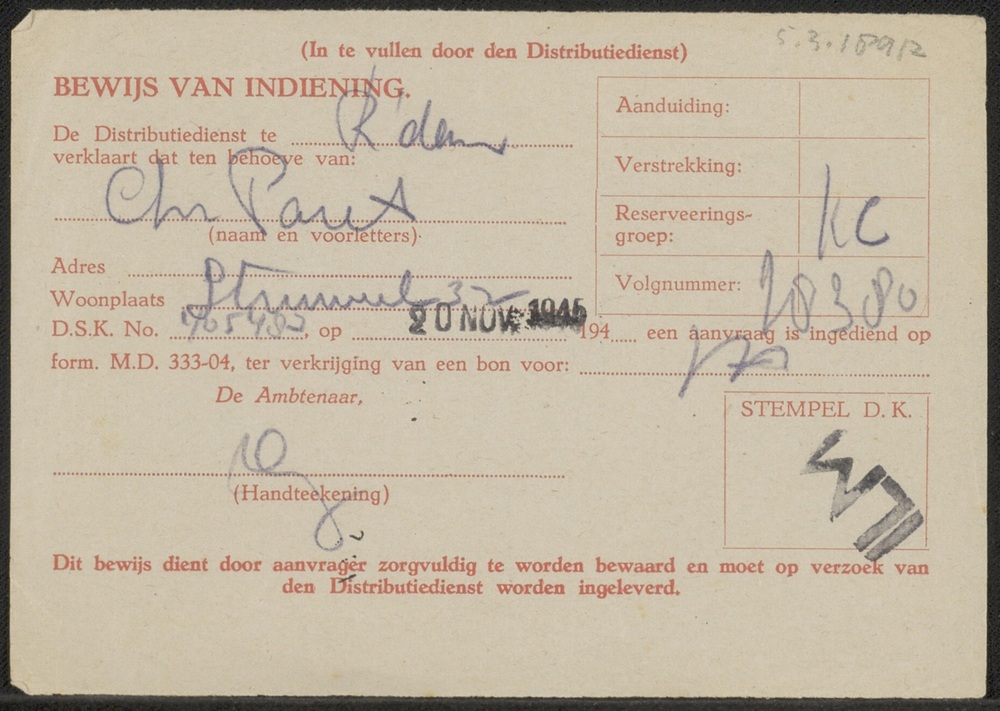 (In te vullen door den Distributiedienst)
5.3.1892
BEWIJS VAN INDIENING.
De Distributiedienst te R'dam
verklaart dat ten behoeve van:
Chr
(naam en voorletters).
Adres
Woonplaats 32
D.S.K. No. , op 20 NOV. 1945 194 een aanvraag is ingediend op
form. M.D. 333-04, ter verkrijging van een bon voor:
De Ambtenaar,
(Handteekening)
Aanduiding:
Verstrekking:
Reserveerings-
groep: KC
Volgnummer: 28380
STEMPEL D. K.
Dit bewijs dient door aanvrager zorgvuldig te worden bewaard en moet op verzoek van
den Distributiedienst worden ingeleverd.